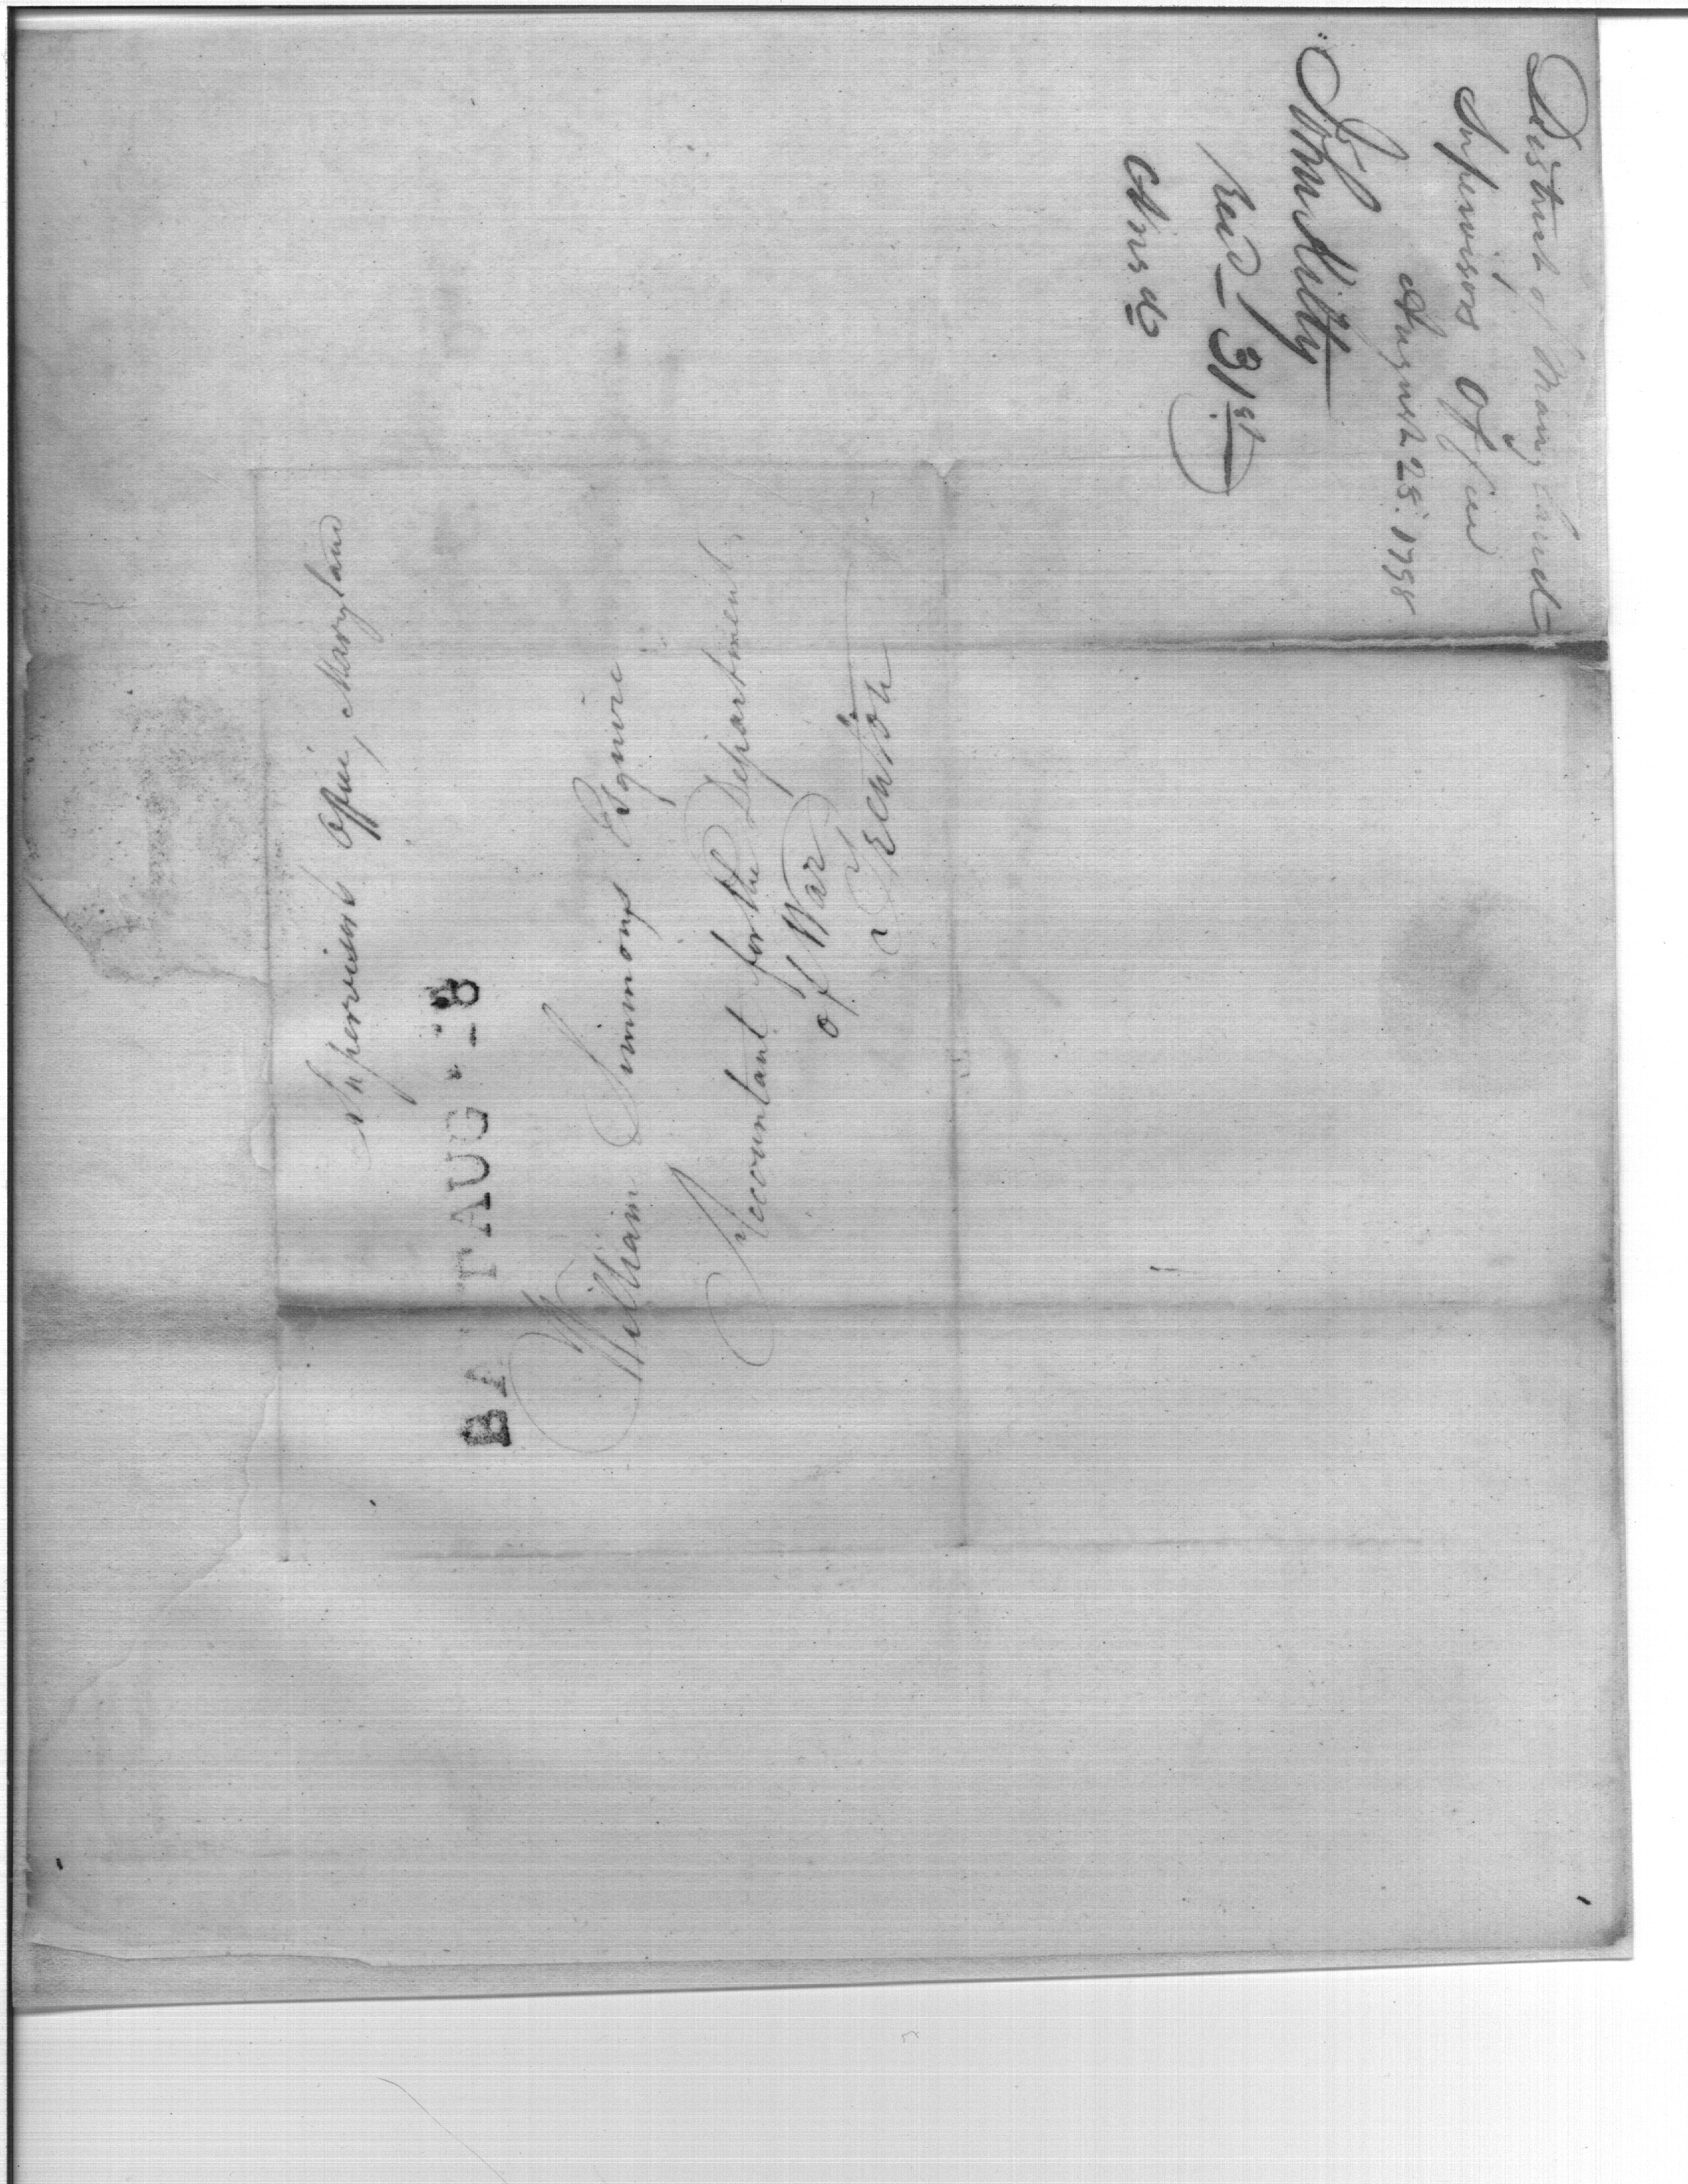 District of Maryland
Supervisors Office
August 28. 1798
John Kilty
Recd 31st
Ansd
Supervisor's Office, Maryland
BA T AUG 28
William Simmons Esquire
Accountant for the Department
of War
Trenton